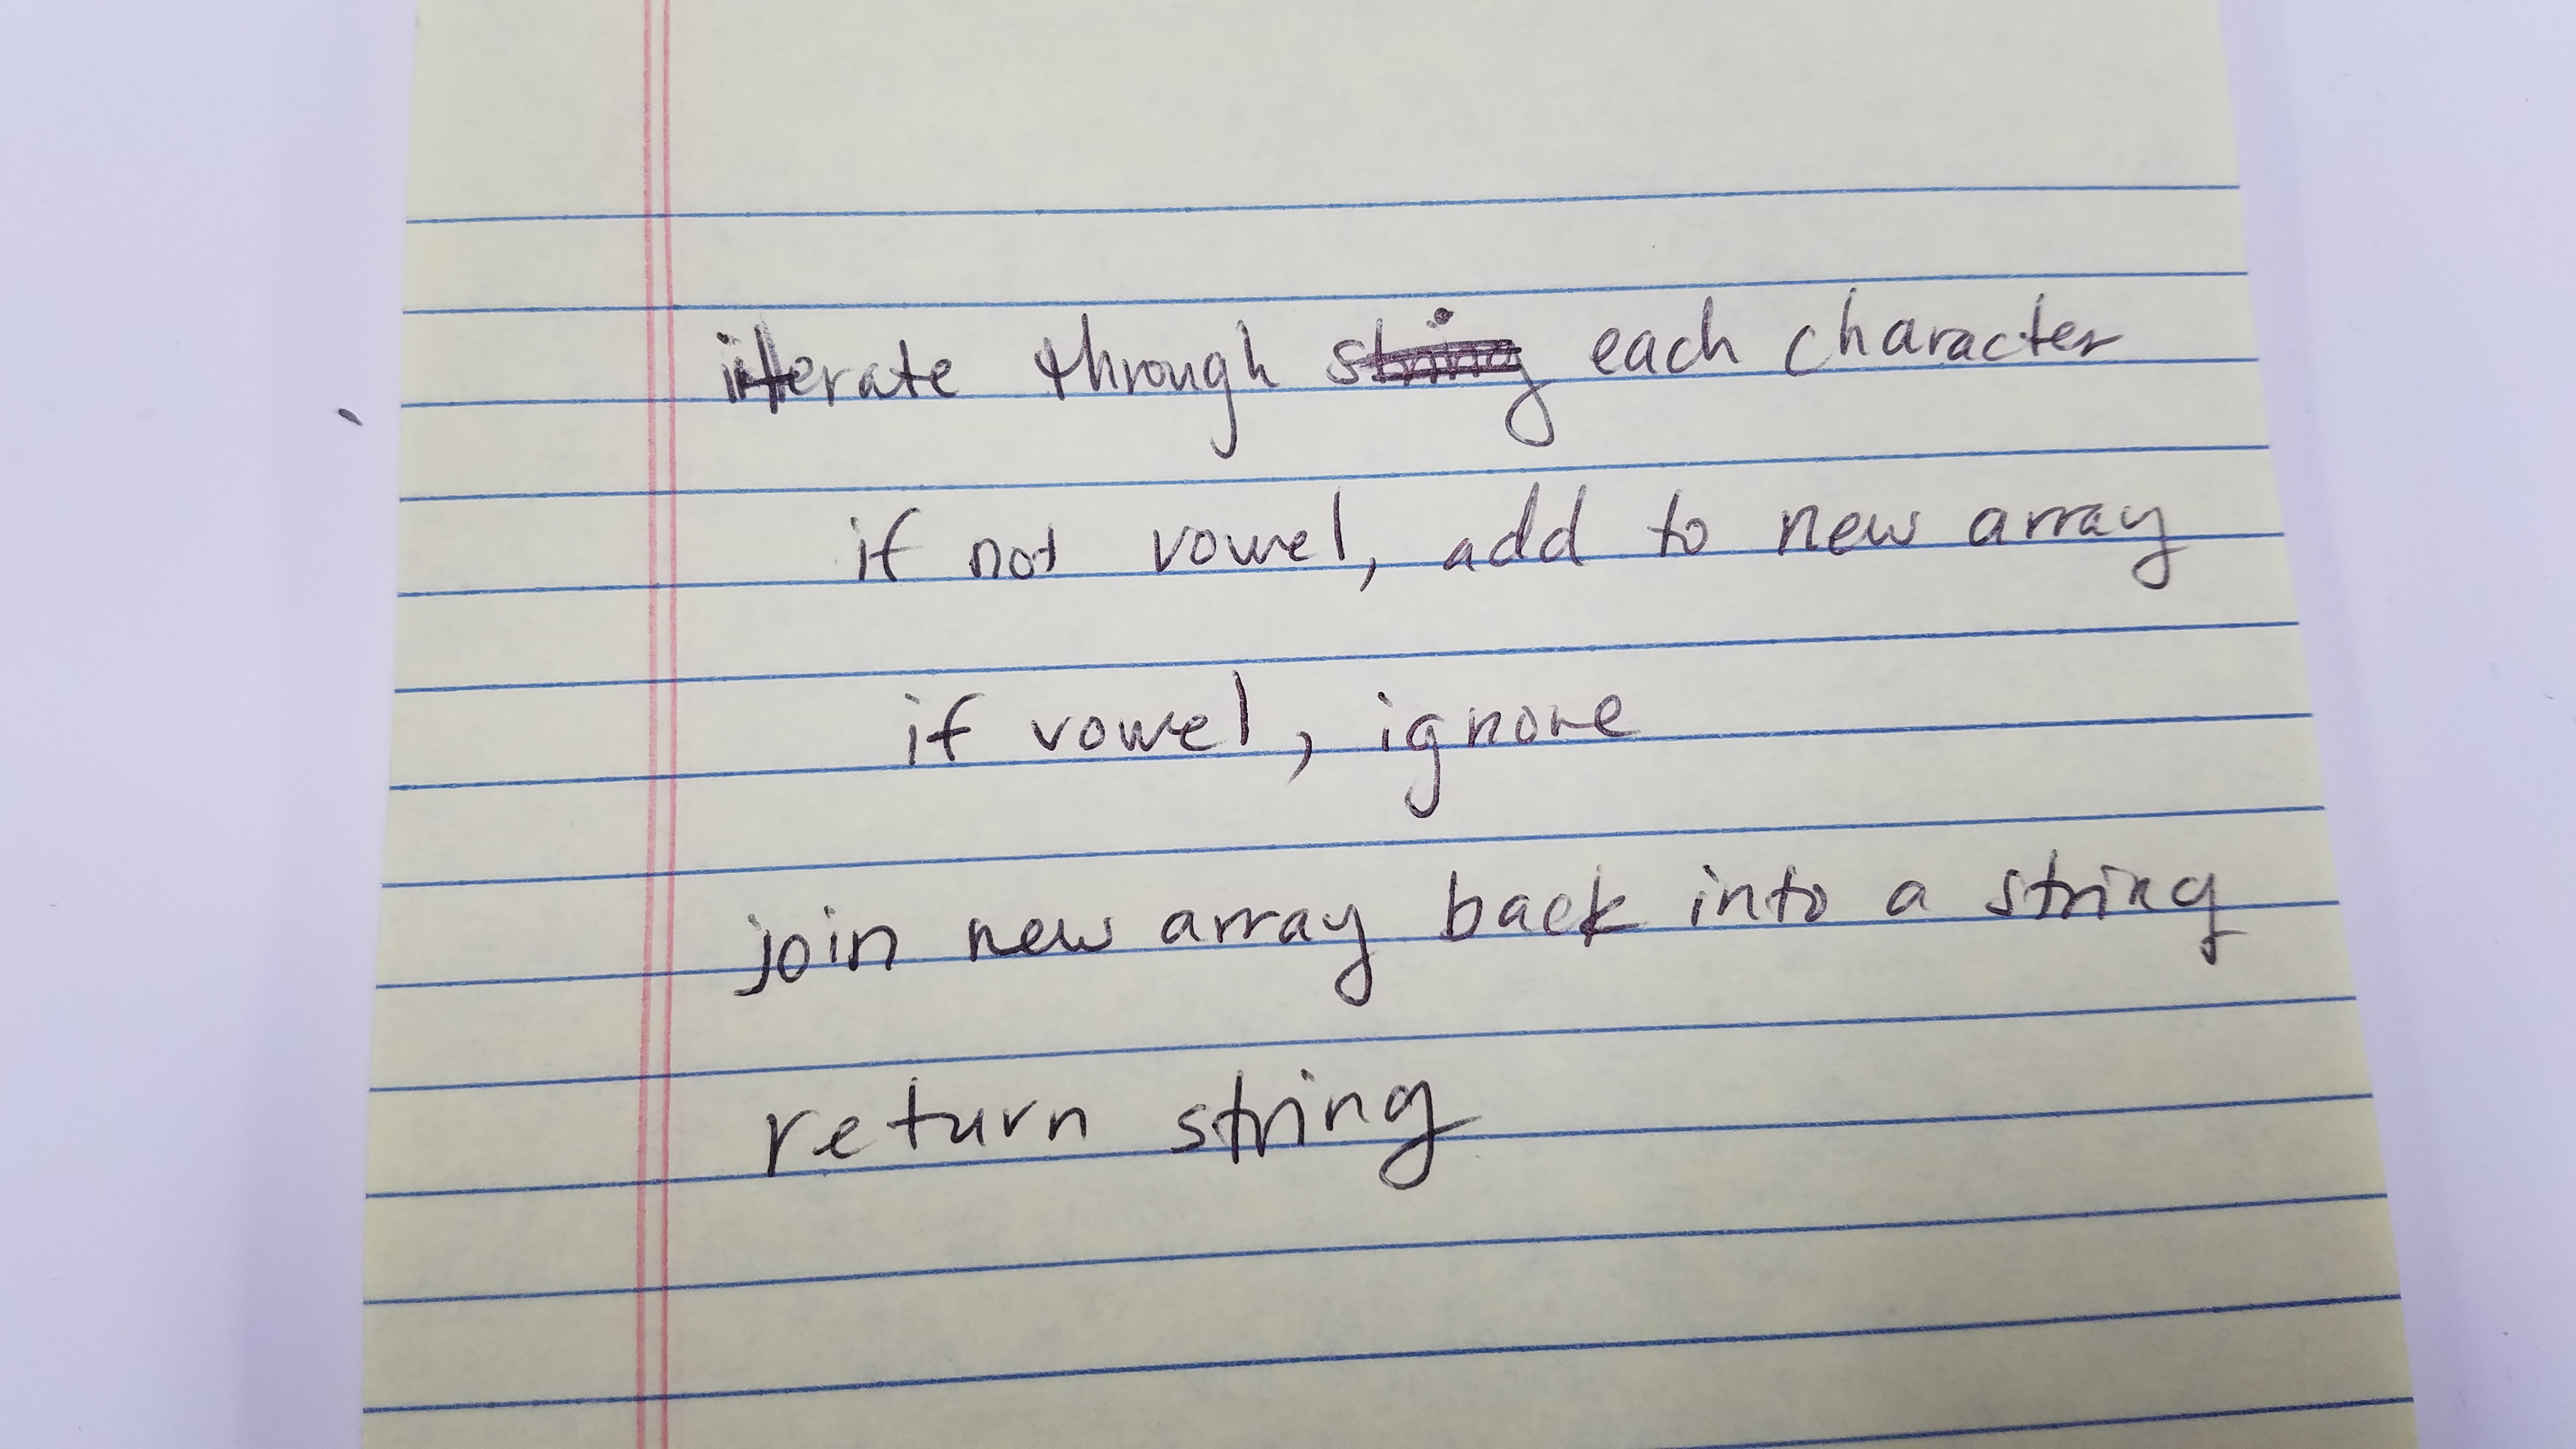 iterate through each character
if not vowel, add to new array
if vowel, ignore
join new array back into a string
return string